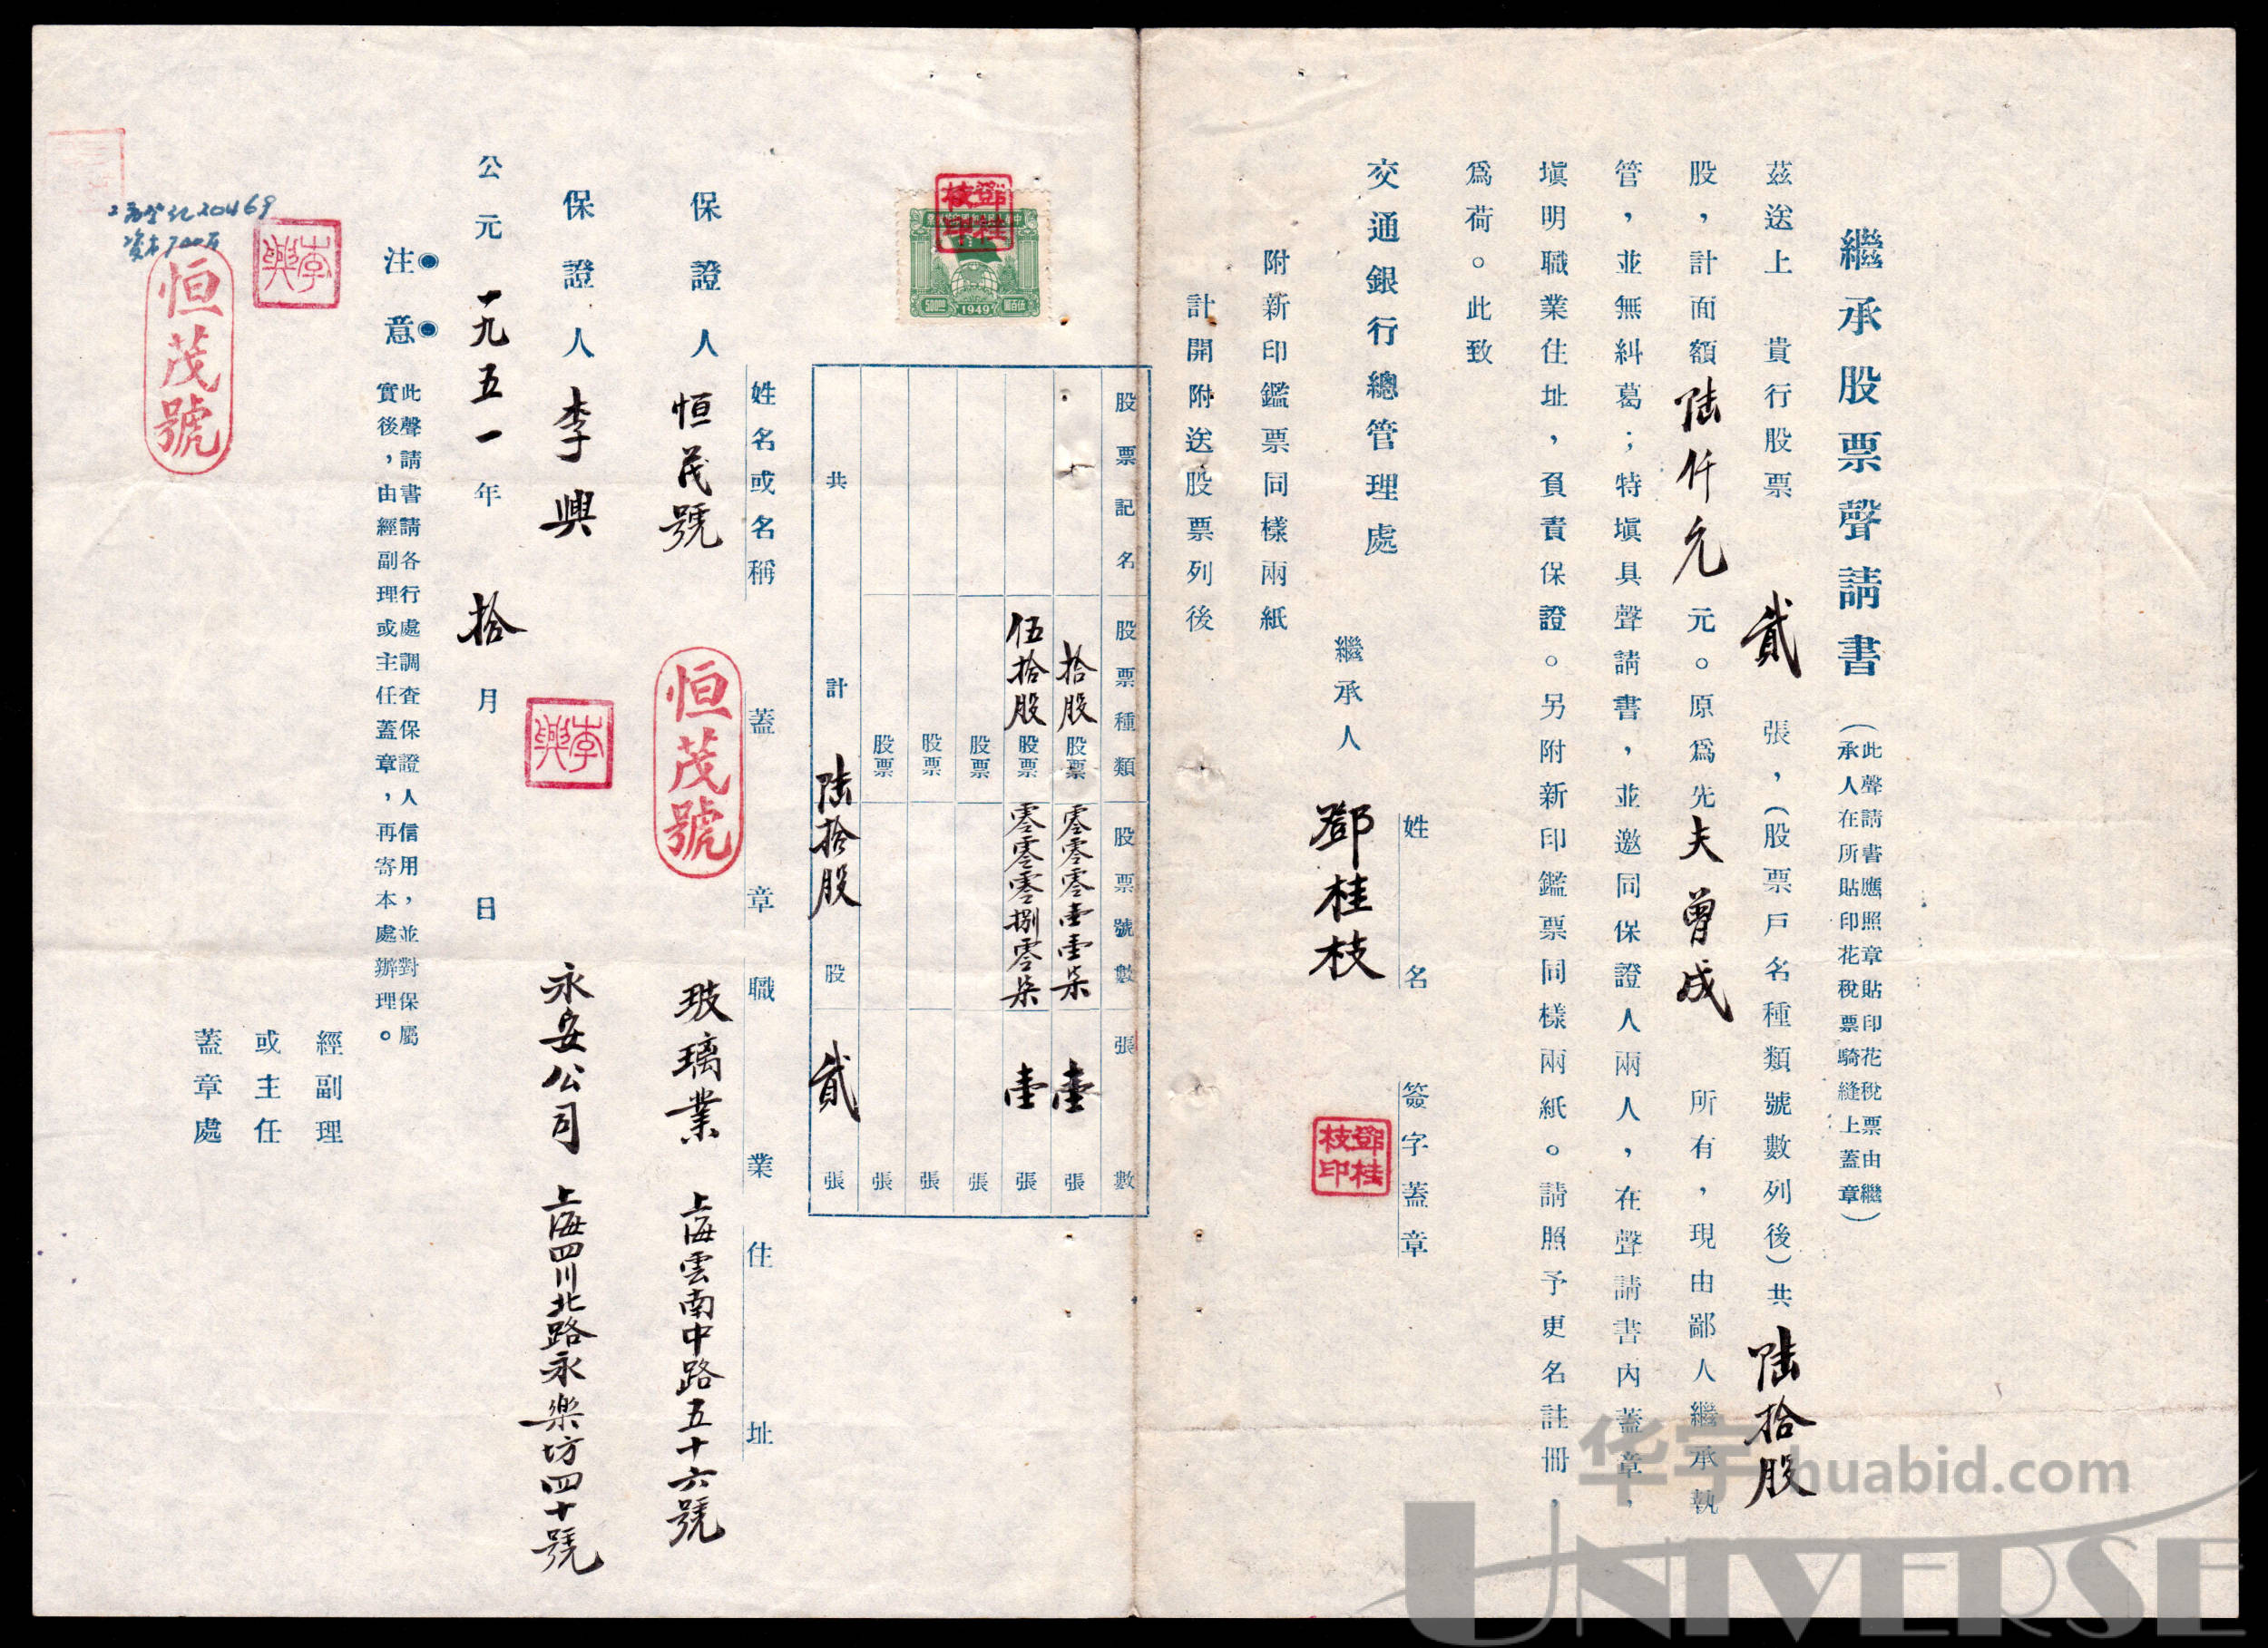 繼承股票聲請書
（此聲請書應照章貼印花稅票由繼
承人在所貼印花稅票騎縫上蓋章）
茲送上　貴行股票　貳　張，（股票戶名種類號數列後）共　陸拾股
股，計面額陸仟元元。原爲先夫曾成　所有，現由鄙人繼承執
管，並無糾葛；特塡具聲請書，並邀同保證人兩人，在聲請書內蓋章，
塡明職業住址，負責保證。另附新印鑑票同樣兩紙。請照予更名註冊，
爲荷。此致
交通銀行總管理處
姓名　簽字蓋章
繼承人　鄧桂枝
鄧桂枝印
附新印鑑票同樣兩紙
計開附送股票列後
股票記名　股票種類　股票號數　張數
拾股股票　零零零壹壹柒　壹張
伍拾股股票　零零零捌零柒　壹張
股票　張
股票　張
股票　張
共計　陸拾股股　貳張
鄧桂枝印
500圓　1949　伍百圓
姓名或名稱　蓋章　職業　住址
保證人　恒茂號　恒茂號　玻璃業　上海雲南中路五十六號
保證人　李興　李興　永安公司　上海四川北路永樂坊四十號
公元一九五一年拾月　日
注意
此聲請書請各行處調查保證人信用，並對保屬
實後，由經副理或主任蓋章，再寄本處辦理。
經副理
或主任
蓋章處
李興
恒茂號
华宇 huabid.com
UNIVERSE